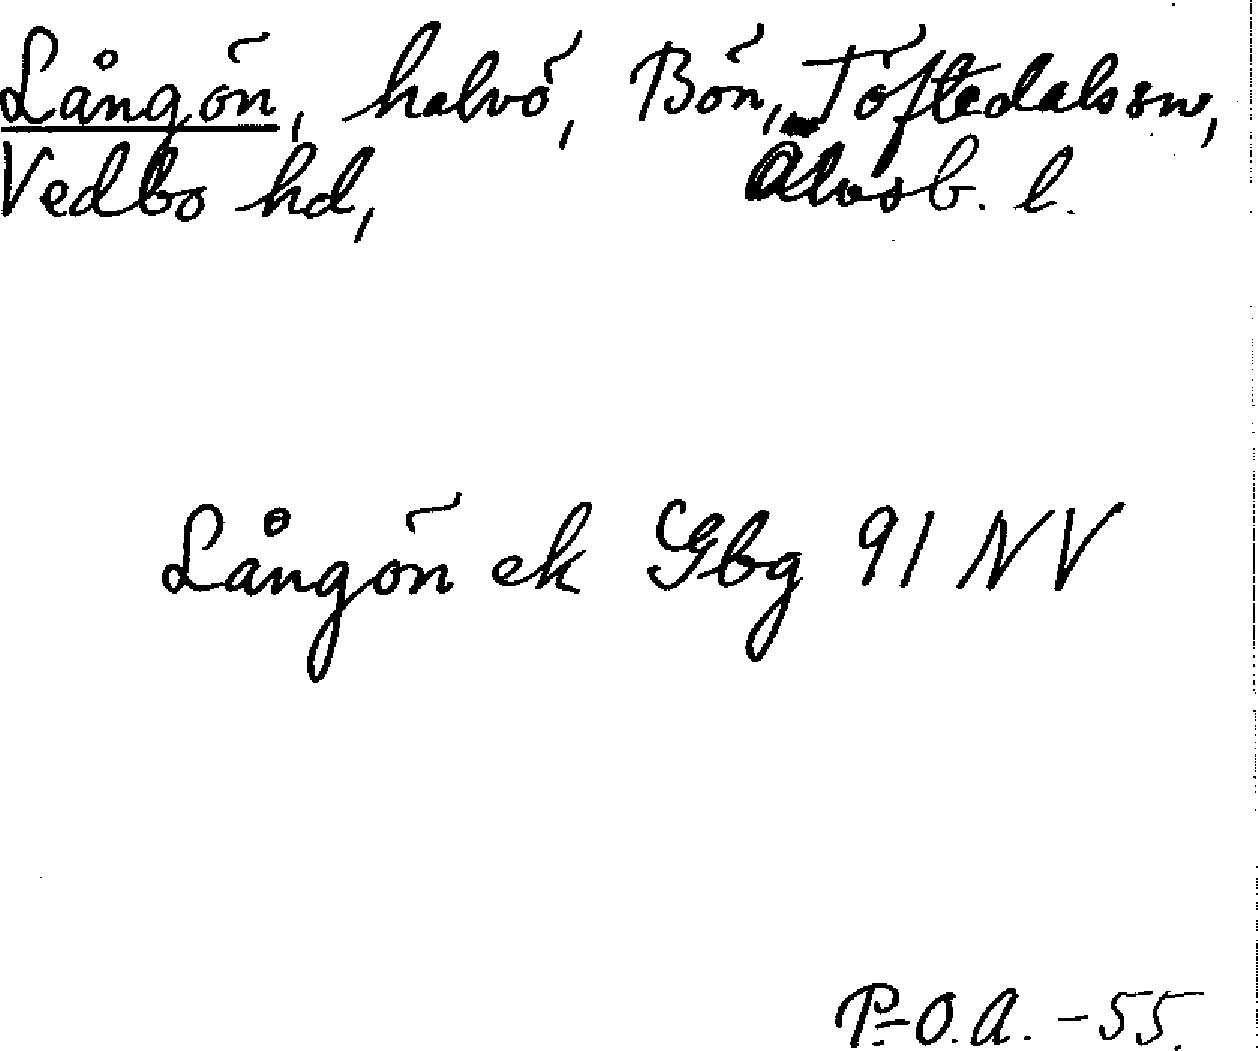 Långön, halvö, Bön, Töftedals sn,
Vedbo hd, Älvsb. l.
Långön ek Gbg 91 NV
P-O.A. -55.